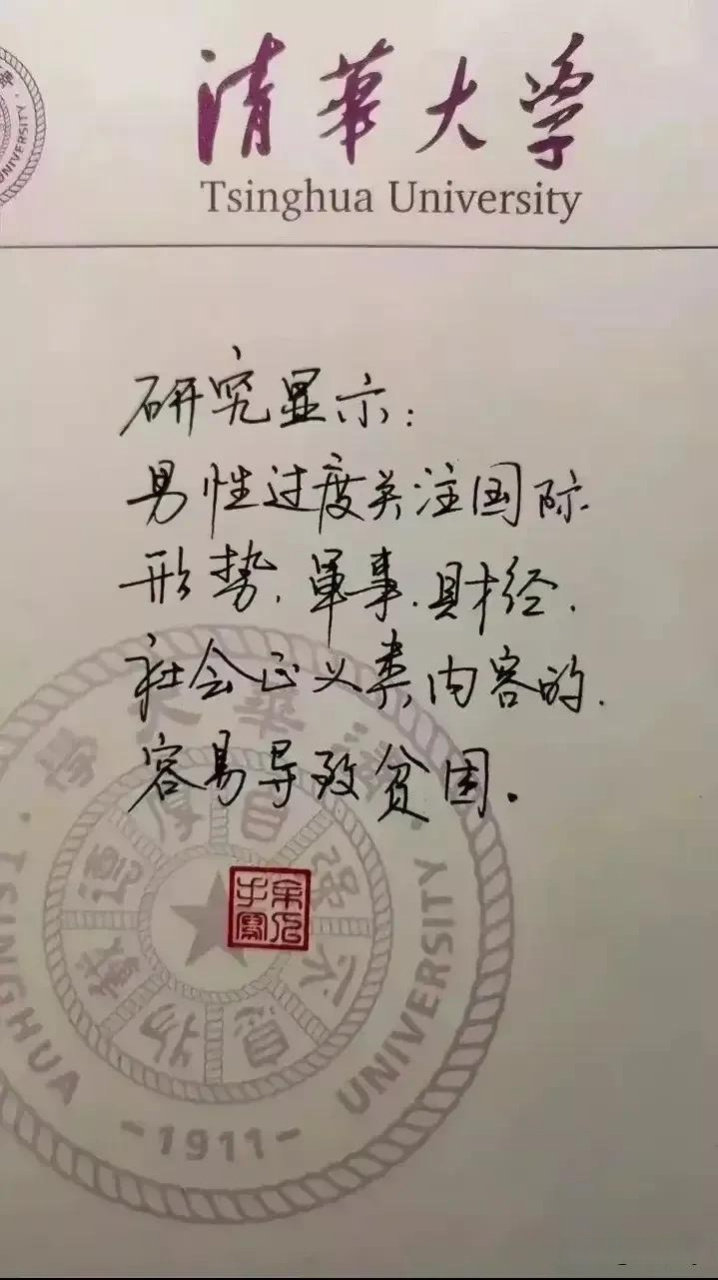 清華大学
Tsinghua University
研究显示:
男性过度关注国际
形势、军事、财经、
社会正义类内容的,
容易导致贫困.
自强不息
厚德载物
TSINGHUA UNIVERSITY
-1911-